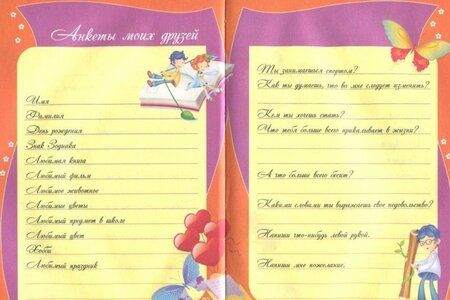 Анкеты моих друзей
Имя
Фамилия
День рождения
Знак Зодиака
Любимая книга
Любимый фильм
Любимое животное
Любимые цветы
Любимый предмет в школе
Любимый цвет
Хобби
Любимый праздник
Ты занимаешься спортом?
Как ты думаешь, что во мне следует изменить?
Кем ты хочешь стать?
Что тебя больше всего привлекает в жизни?
А что больше всего бесит?
Какими словами ты выражаешь свое недовольство?
Напиши что-нибудь левой рукой.
Напиши мне пожелание.